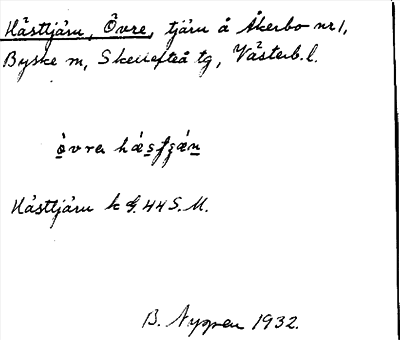 Hästtjärn, Övre, tjärn å Åkerbo nr 1,
Byske sn, Skellefteå tg, Västerb. l.
övra hæsʃæn
Hästtjärn k G. 44 S.M.
B. Nygren 1932.